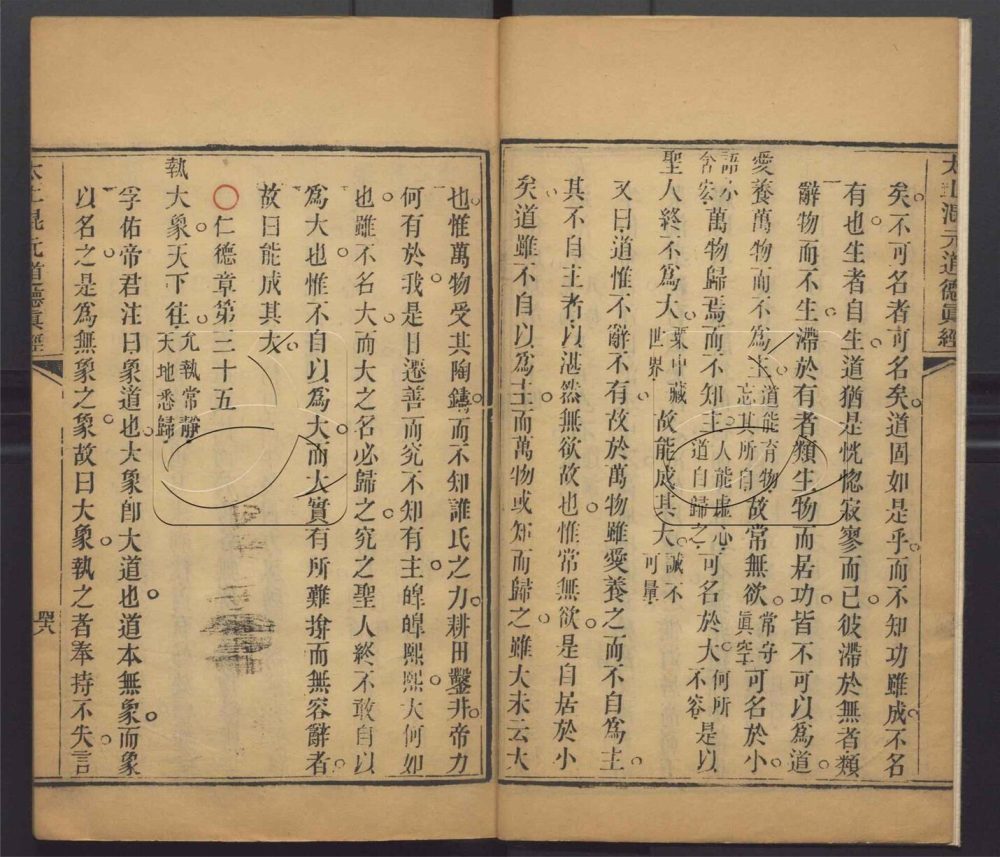 太上混元道德眞經
矣不可名者可名矣道固如是乎而不知功雖成不名
有也生者自生道猶是恍惚寂寥而已彼滯於無者類
辭物而不生滯於有者類生物而居功皆不可以爲道
愛養萬物而不爲主道能育物忘其所自故常無欲常守眞空可名於小
語小含容萬物歸焉而不知主人能虛心道自歸之可名於大何所不容是以
聖人終不爲大粟中藏世界故能成其大誠不可量
又曰道惟不辭不有故於萬物雖愛養之而不自爲主
其不自主者以湛然無欲故也惟常無欲是自居於小
矣道雖不自以爲主而萬物或知而歸之雖大未云大
也惟萬物受其陶鑄而不知誰氏之力耕田鑿井帝力
何有於我是日遷善而究不知有主皥皥熙熙大何如
也雖不名大而大之名必歸之究之聖人終不敢自以
爲大也惟不自以爲大而大實有所難揜而無容辭者
故曰能成其大
〇仁德章第三十五
執大象天下往允執常靜天地悉歸
孚佑帝君注曰象道也大象卽大道也道本無象而象
以名之是爲無象之象故曰大象執之者奉持不失言
太上混元道德眞經